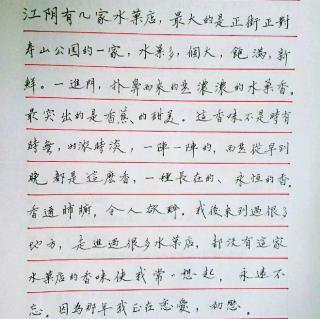 江阴有几家水菓店，最大的是正街正對
寿山公园的一家，水菓多，個大，飽滿，新
鮮。一進門，扑鼻而来的是濃濃的水菓香。
最突出的是香蕉的甜美。這香味不是時有
時無，时浓時淡，一陣一陣的，而是從早到
晚都是這麽香，一種長在的、永恒的香。
香透肺腑，令人欲醉。我後来到過很多
地方，走進過很多水菓店，都沒有這家
水菓店的香味使我常一想起，永遠不
忘。因為那年我正在恋愛，初恋。